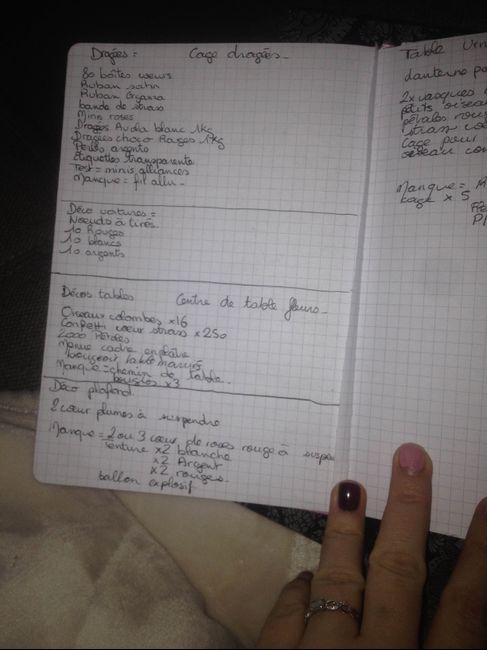 Dragées = Cage dragées_
80 boîtes coeurs
Ruban satin
Ruban Organza
bande de strass
Mini roses
Dragées Avola blanc 1kg
Dragées choco Rouges 1kg
Perles argents
Etiquettes transparente
Test = minis alliances
Manque = fil alu_
Déco voitures =
Noeuds à tirés.
10 Rouges
10 blancs
10 argents
Décos tables Centre de table fleurs_
Oiseaux colombes x16
Confetti coeur strass x250
2000 Pétales
Menu cadre
bougeoir table mariés
Manque = chemin de table_
bougies x3
Déco plafond
2 coeur plumes à suspendre
Manque = 2 ou 3 coeur de roses rouge à suspe
tenture x2 blanche
x2 Argent
x2 rouges.
ballon explosif
Table Urn
Lanterne po
2x vasques
petits oisea
pétales roug
strass
Cage pour
oiseau
Manque =
Cage x 5